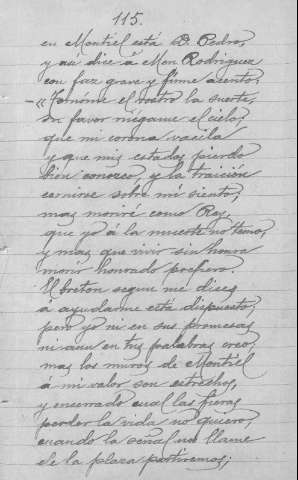 115.
en Montiel está D. Pedro,
y así dice á Men Rodriguez
con faz grave y firme acento:
—«Tornóme el rostro la suerte,
su favor niégame el cielo;
que mi corona vacila
y que mis estados pierdo
bien conozco, y la traicion
cernirse sobre mí siento;
mas moriré como Rey,
que yo á la muerte no temo,
y mas que vivir sin honra
morir honrado prefiero.
El breton segun me dices
á ayudarme está dispuesto,
pero yo ni en sus promesas
ni aun en tus palabras creo,
mas los muros de Montiel
á mi valor son estrechos,
y encerrado cual las fieras
perder la vida no quiero,
cuando la señal nos llame
de la plaza partiremos;